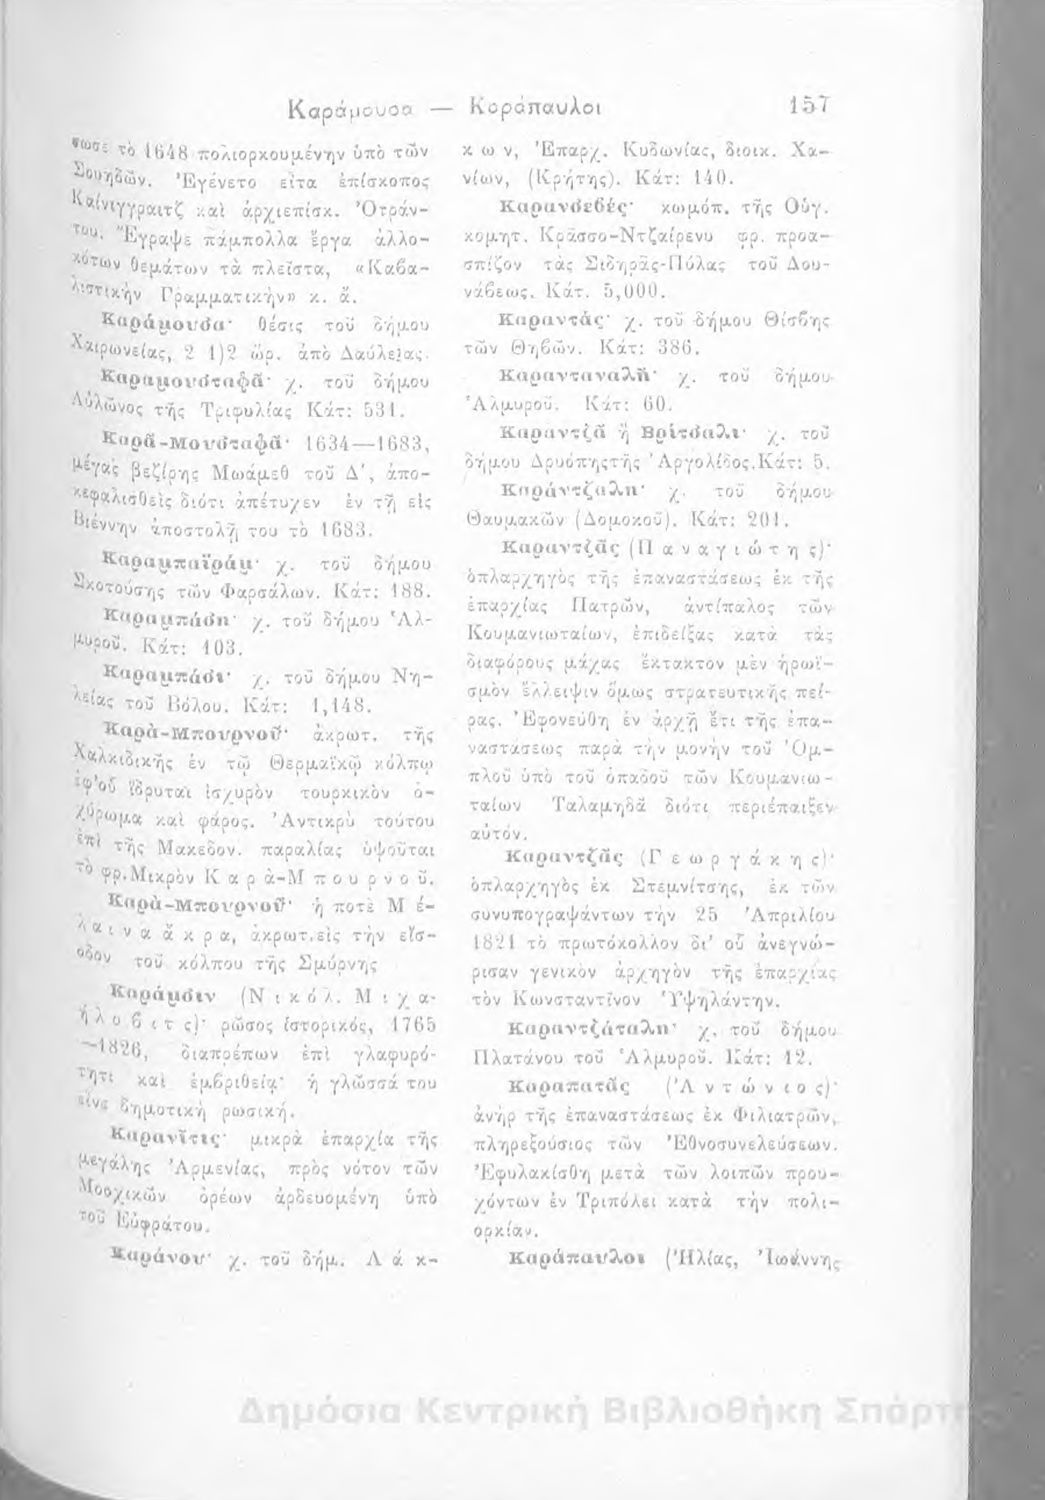 Καράμουσα — Καράπαυλοι 157
σωσε τὸ 1648 πολιορκουμένην ὑπὸ τῶν
Σουηδῶν. Ἐγένετο εἶτα ἐπίσκοπος
Καίνιγγραιτζ καὶ ἀρχιεπίσκ. Ὀτράν-
του. Ἔγραψε πάμπολλα ἔργα ἀλλο-
κότων θεμάτων τὰ πλεῖστα, «Καβα-
λιστικὴν Γραμματικὴν» κ. ἄ.
Καράμουσα· θέσις τοῦ δήμου
Χαιρωνείας, 2 1)2 ὥρ. ἀπὸ Δαύλειας.
Καραμουσταφᾶ· χ. τοῦ δήμου
Αὐλῶνος τῆς Τριφυλίας Κάτ: 531.
Καρᾶ-Μουσταφᾶ· 1634—1683,
μέγας βεζίρης Μωάμεθ τοῦ Δ', ἀπο-
κεφαλισθεὶς διότι ἀπέτυχεν ἐν τῇ εἰς
Βιέννην ἀποστολῇ του τὸ 1683.
Καραμπαϊράμ· χ. τοῦ δήμου
Σκοτούσης τῶν Φαρσάλων. Κάτ: 188.
Καραμπάση· χ. τοῦ δήμου Ἁλ-
μυροῦ. Κάτ: 103.
Καραμπάσι· χ. τοῦ δήμου Νη-
λείας τοῦ Βόλου. Κάτ: 1,148.
Καρὰ-Μπουρνοῦ· ἀκρωτ. τῆς
Χαλκιδικῆς ἐν τῷ Θερμαϊκῷ κόλπῳ
ἐφ' οὗ ἵδρυται ἰσχυρὸν τουρκικὸν ὀ-
χύρωμα καὶ φάρος. Ἀντικρὺ τούτου
ἐπὶ τῆς Μακεδον. παραλίας ὑψοῦται
τὸ φρ. Μικρὸν Καρὰ-Μπουρνοῦ.
Καρὰ-Μπουρνοῦ· ἡ ποτὲ Μέ-
λαινα ἄκρα, ἀκρωτ. εἰς τὴν εἴσ-
οδον τοῦ κόλπου τῆς Σμύρνης
Καράμσιν (Νικόλ. Μιχα-
ήλοβιτς)· ρῶσος ἱστορικός, 1765
—1826, διαπρέπων ἐπὶ γλαφυρό-
τητι καὶ ἐμβριθείᾳ· ἡ γλῶσσά του
εἶνε δημοτικὴ ρωσική.
Καρανῖτις· μικρὰ ἐπαρχία τῆς
μεγάλης Ἀρμενίας, πρὸς νότον τῶν
Μοσχικῶν ὀρέων ἀρδευομένη ὑπὸ
τοῦ Εὐφράτου.
Καράνου· χ. τοῦ δήμ. Λάκ-
κων, Ἐπαρχ. Κυδωνίας, διοικ. Χα-
νίων, (Κρήτης). Κάτ: 140.
Καρανσεβές· κωμόπ. τῆς Οὑγ.
κομητ. Κράσσο-Ντζαίρενυ φρ. προα-
σπίζον τὰς Σιδηρᾶς-Πύλας τοῦ Δου-
νάβεως. Κάτ. 5,000.
Καραντάς· χ. τοῦ δήμου Θίσβης
τῶν Θηβῶν. Κάτ: 386.
Καρανταναλῆ· χ. τοῦ δήμου
Ἁλμυροῦ. Κάτ: 60.
Καραντζᾶ ἢ Βρίτσαλι· χ. τοῦ
δήμου Δρυόπης τῆς Ἀργολίδος. Κάτ: 5.
Καράντζαλη· χ. τοῦ δήμου
Θαυμακῶν (Δομοκοῦ). Κάτ: 201.
Καραντζᾶς (Παναγιώτης)·
ὁπλαρχηγὸς τῆς ἐπαναστάσεως ἐκ τῆς
ἐπαρχίας Πατρῶν, ἀντίπαλος τῶν
Κουμανιωταίων, ἐπιδείξας κατὰ τὰς
διαφόρους μάχας ἔκτακτον μὲν ἡρωϊ-
σμὸν ἔλλειψιν ὅμως στρατευτικῆς πεί-
ρας. Ἐφονεύθη ἐν ἀρχῇ ἔτι τῆς ἐπα-
ναστάσεως παρὰ τὴν μονὴν τοῦ Ὀμ-
πλοῦ ὑπὸ τοῦ ὀπαδοῦ τῶν Κουμανιω-
ταίων Ταλαμηδᾶ διότι περιέπαιξεν
αὐτόν.
Καραντζᾶς (Γεωργάκης)·
ὁπλαρχηγὸς ἐκ Στεμνίτσης, ἐκ τῶν
συνυπογραψάντων τὴν 25 Ἀπριλίου
1821 τὸ πρωτόκολλον δι' οὗ ἀνεγνώ-
ρισαν γενικὸν ἀρχηγὸν τῆς ἐπαρχίας
τὸν Κωνσταντῖνον Ὑψηλάντην.
Καραντζάταλη· χ. τοῦ δήμου
Πλατάνου τοῦ Ἁλμυροῦ. Κάτ: 12.
Καραπατᾶς (Ἀντώνιος)·
ἀνὴρ τῆς ἐπαναστάσεως ἐκ Φιλιατρῶν,
πληρεξούσιος τῶν Ἐθνοσυνελεύσεων.
Ἐφυλακίσθη μετὰ τῶν λοιπῶν πρου-
χόντων ἐν Τριπόλει κατὰ τὴν πολι-
ορκίαν.
Καράπαυλοι (Ἠλίας, Ἰωάννης
Δημόσια Κεντρική Βιβλιοθήκη Σπάρτης